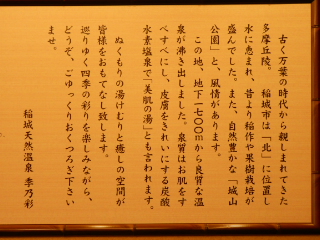 古く万葉の時代から親しまれてきた
多摩丘陵。稲城市は「北」に位置し
水に恵まれ、昔より稲作や果樹栽培が
盛んでした。また、自然豊かな「城山
公園」と、風情があります。
この地、地下一七〇〇mから良質な温
泉が沸き出しました。泉質はお肌をす
べすべにし、皮膚をきれいにする炭酸
水素塩泉で「美肌の湯」とも言われます。
ぬくもりの湯けむりと癒しの空間が
皆様をおもてなし致します。
巡りゆく四季の彩りを楽しみながら、
どうぞ、ごゆっくりおくつろぎ下さい
ませ。
稲城天然温泉 季乃彩